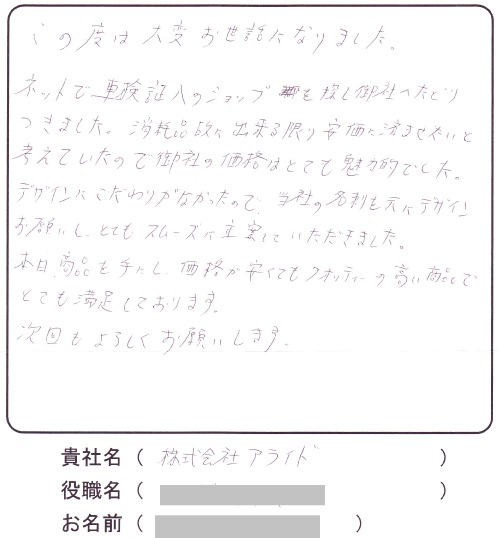 この度は大変お世話になりました。
ネットで車検証入のショップを探し御社へたどり
つきました。消耗品故に出来る限り安価に済ませたいと
考えていたので御社の価格はとても魅力的でした。
デザインにこだわりがなかったので、当社の名刺を元にデザイン
お願いし、とてもスムーズに立案していただきました。
本日、商品を手にし、価格が安くてもクオリティーの高い商品で
とても満足しております。
次回もよろしくお願いします。
貴社名（ 株式会社アライド ）
役職名（ ）
お名前（ ）